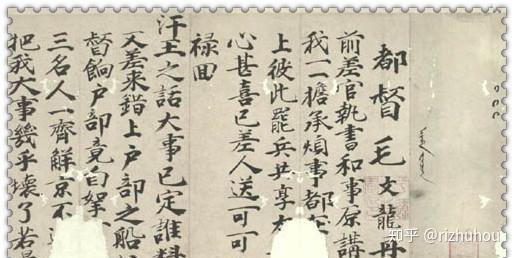 都督毛文龍再
前差官執書和事原講
我一一擔承煩事都在
上彼此罷兵共享
心甚喜已差人送可可
祿回
汗王之話大事已定誰料
又差來錯上戶部之船
督餉戶部竟自拏
三名人一齊解京不
把我大事幾乎壞了若
知乎 @rizhuhou